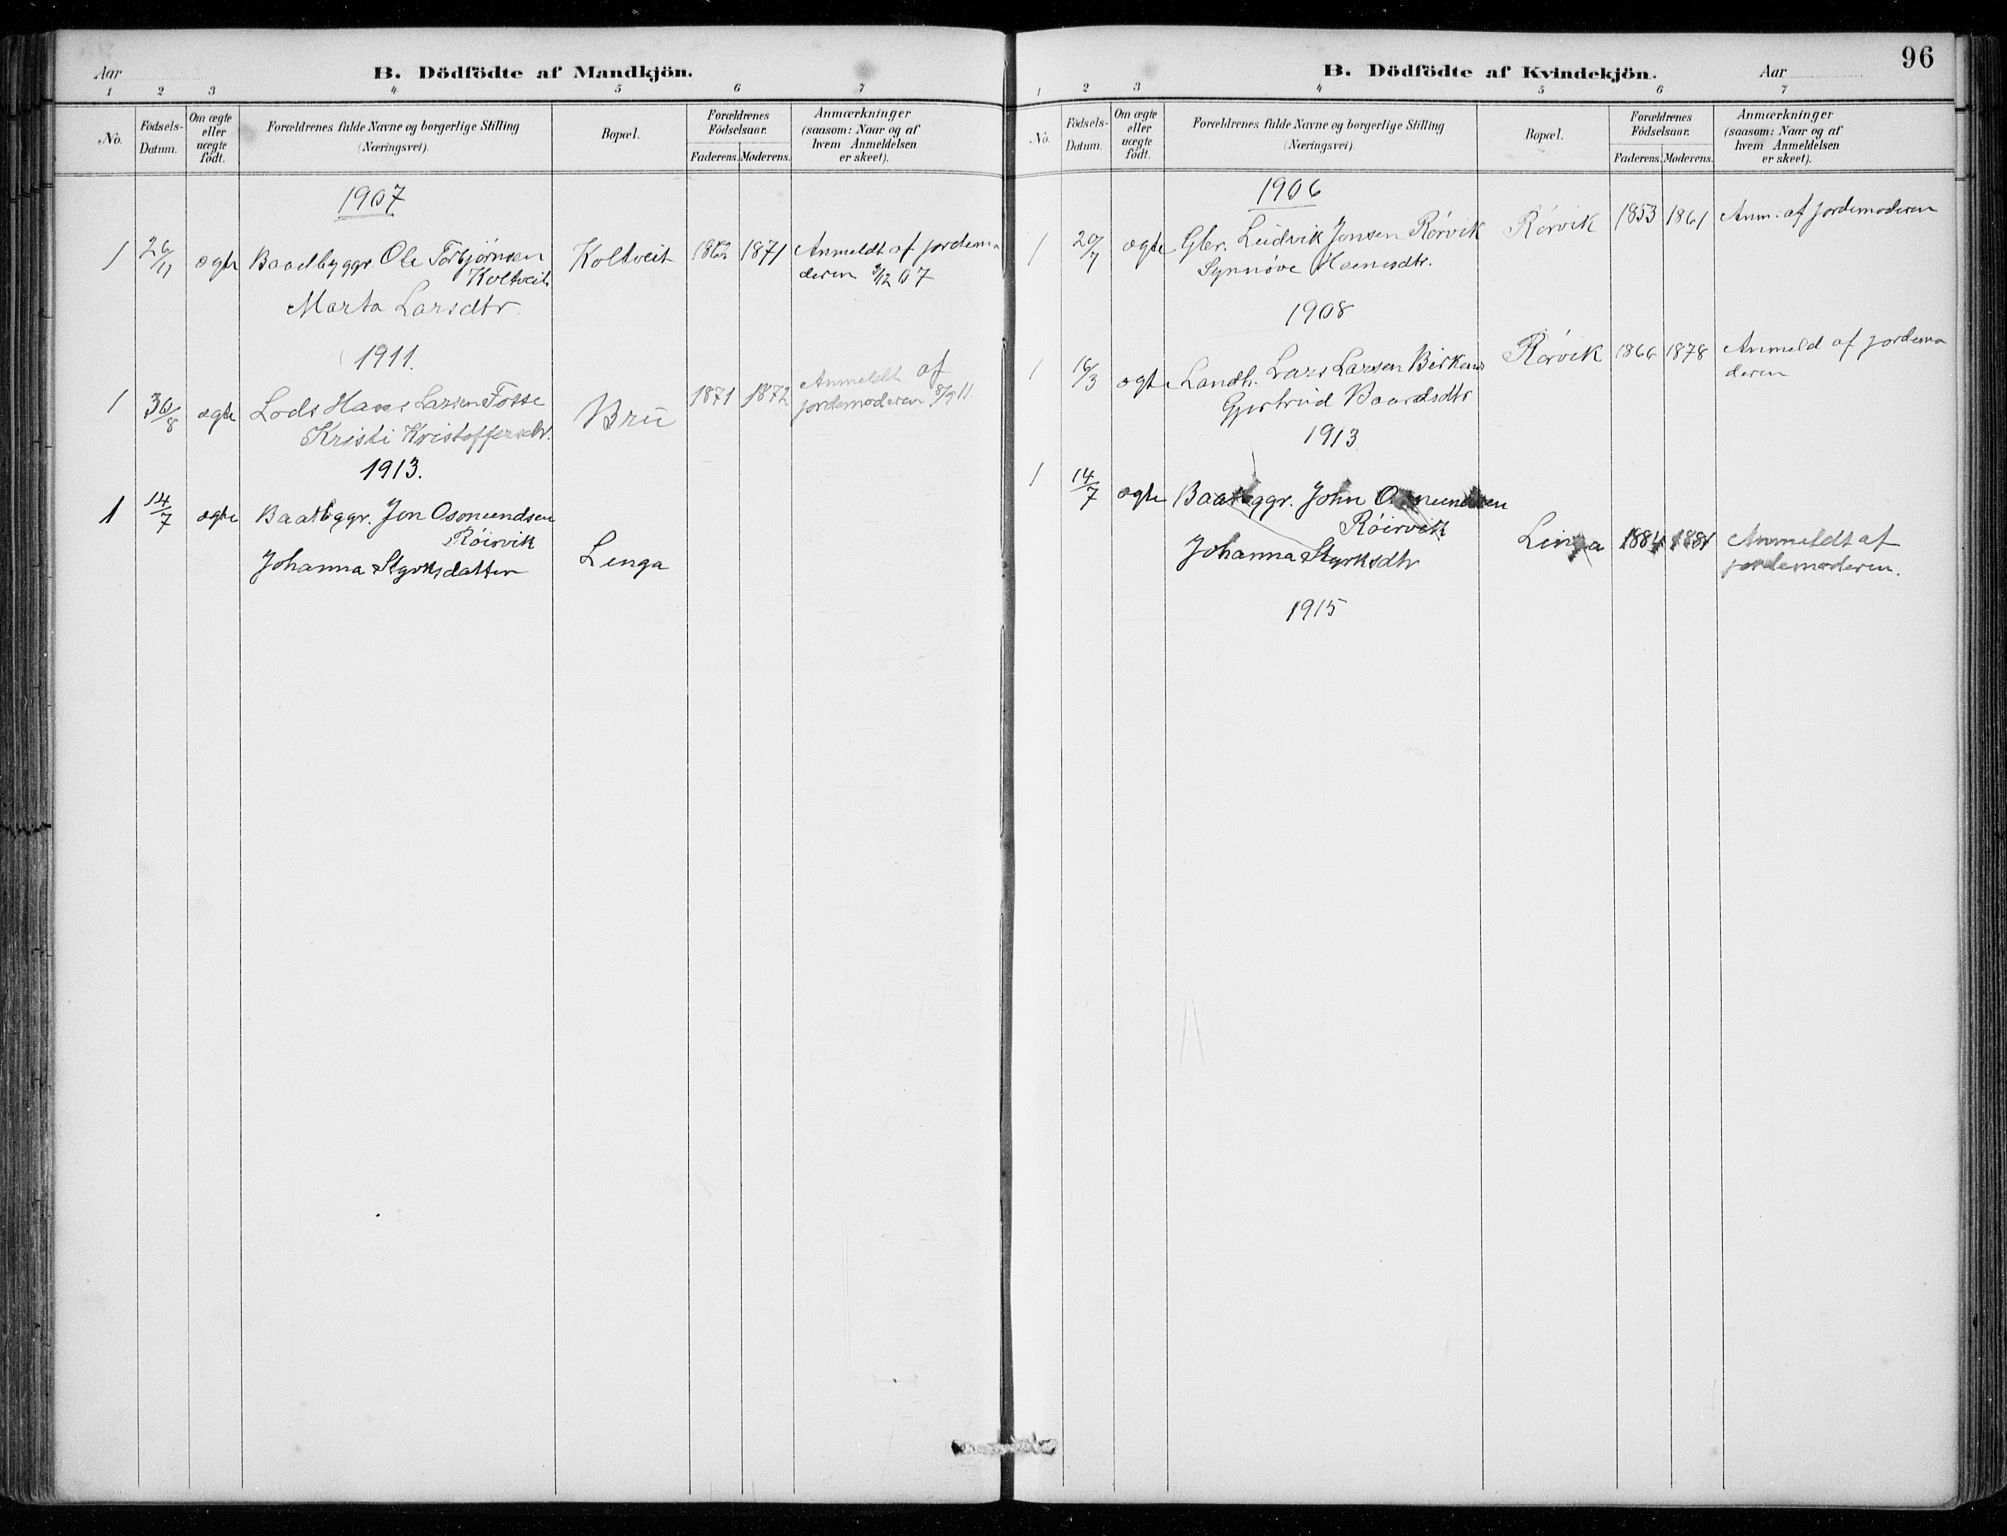 Aar
B. Dödfödte af Mandkjön.
1 2 3 4 5 6 7
No. Födsels-Datum. Om ægte eller uægte födt. Forældrenes fulde Navne og borgerlige Stilling (Næringsvei). Bopæl. Forældrenes Födselsaar. Faderens. Moderens. Anmærkninger (saasom: Naar og af hvem Anmeldelsen er skeet).
1907
1 26/11 ægte Baadbyggr. Ole Torbjørnsen Koltveit 1862 1871 Anmeldt af jordemo
Koltveit deren 3/12 07
Marta Larsdtr.
1911.
1 30/8 ægte Lods Hans Larsen Fosse Bru 1871 1872 Anmeldt af
Kristi Kristoffersdtr. jordemoderen 8/9 11.
1913.
1 14/7 ægte Baatbggr. Jon Osmundsen
Røirvik
Johanna Styrksdatter Linga
96
B. Dödfödte af Kvindekjön.
Aar
1 2 3 4 5 6 7
No. Födsels-Datum. Om ægte eller uægte födt. Forældrenes fulde Navne og borgerlige Stilling (Næringsvei). Bopæl. Forældrenes Födselsaar. Faderens. Moderens. Anmærkninger (saasom: Naar og af hvem Anmeldelsen er skeet).
1906
1 20/7 ægte Gbr. Ludvik Jonsen Rørvik Rørvik 1853 1861 Anm. af jordemoderen
Synnøve
1908
1 16/3 ægte Landh. Lars Larsen Birkeland Rørvik 1866 1878 Anmeld af jordemo
Gjertrud Baardsdtr deren
1913
1 14/7 ægte Baatbggr. John Osmundsen
Røirvik
Johanna Styrksdtr Linga 1884 1881 Anmeldt af
jordemoderen.
1915